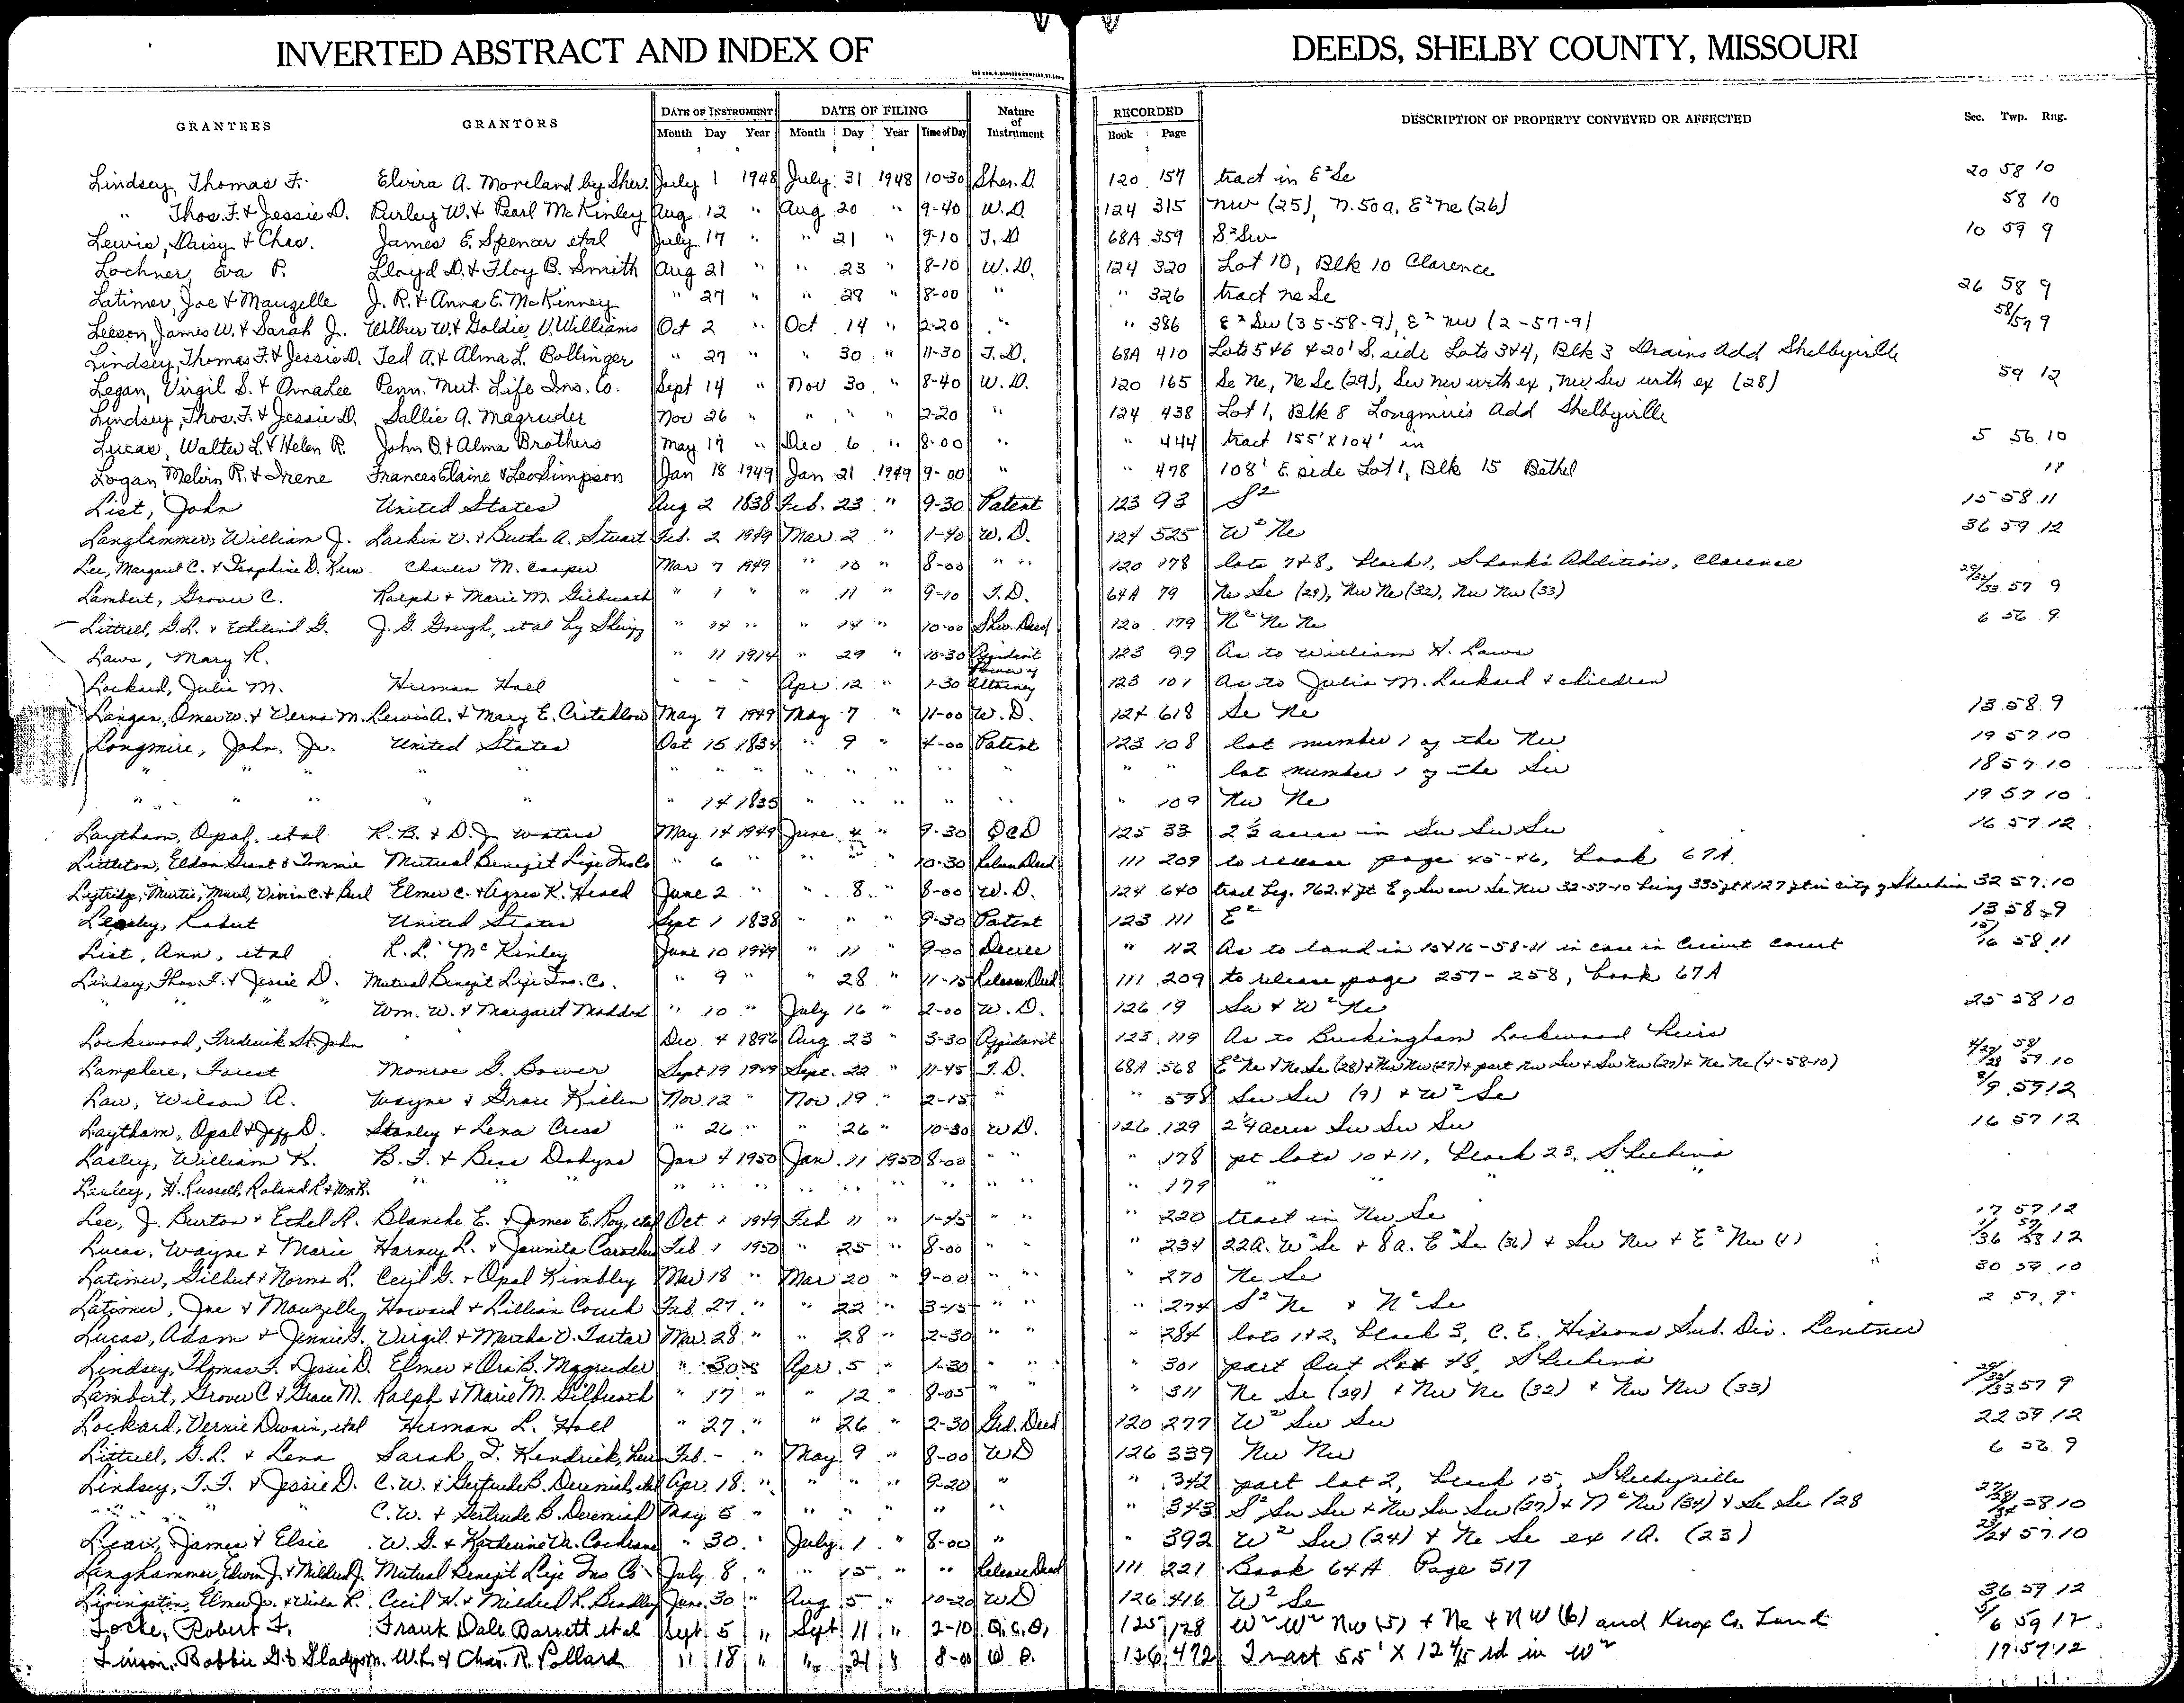 INVERTED ABSTRACT AND INDEX OF DEEDS, SHELBY COUNTY, MISSOURI
GRANTEES GRANTORS DATE OF INSTRUMENT DATE OF FILING Nature of Instrument RECORDED DESCRIPTION OF PROPERTY CONVEYED OR AFFECTED Sec. Twp. Rng.
Month Day Year Month Day Year Time of Day Book Page
Lindsey, Thomas F. Elvira A. Moreland by Sher. July 1 1948 July 31 1948 10-30 Sher. D. 120 157 tract in E²Se 20 58 10
" Thos. F. & Jessie D. Purley W. & Pearl McKinley Aug 12 " Aug 20 " 9-40 W.D. 124 315 nw (25), n. 50a. E²ne (26) 58 10
Lewis, Daisy & Chas. James E. Spencer etal July 17 " " 21 " 9-10 T.D 68A 359 S²Sw 10 59 9
Lochner, Eva P. Lloyd D. & Floy B. Smith Aug 21 " " 23 " 8-10 W.D. 124 320 Lot 10, Blk 10 Clarence
Latimer, Joe & Mauzelle J. R. & Anna E. McKinney " 27 " " 28 " 8-00 " " 326 tract ne Se 26 58 9
Leeson, James W. & Sarah J. Wilbur W. & Goldie V. Williams Oct 2 " Oct 14 " 2-20 " " 386 E²Sw (35-58-9), E² nw (2-57-9) 58/57 9
Lindsey, Thomas F. & Jessie D. Ted A. & Alma L. Bollinger " 27 " " 30 " 11-30 T.D. 68A 410 Lots 5 & 6 & 20' S. side Lots 3 & 4, Blk 3 Drains Add Shelbyville
Legan, Virgil S. & OmaLee Penn. Mut. Life Ins. Co. Sept 14 " Nov 30 " 8-40 W.D. 120 165 Se Ne, Ne Se (29), Sw nw with ex, nw Sw with ex (28) 59 12
Lindsey, Thos. F. & Jessie D. Sallie A. Magruder Nov 26 " " " " 2-20 " 124 438 Lot 1, Blk 8 Longmire's Add Shelbyville
Lucas, Walter L. & Helen R. John D. & Alma Brothers May 17 " Dec 6 " 8-00 " " 444 tract 155' X 104' in 5 56 10
Logan, Melvin R. & Irene Frances Elaine & Leo Simpson Jan 18 1949 Jan 21 1949 9-00 " " 478 108' E side Lot 1, Blk 15 Bethel "
List, John United States Aug 2 1838 Feb. 23 " 9-30 Patent 123 93 S² 15 58 11
William J. Larkin V. & A. Stuart Feb. 2 1949 Mar 2 " 1-40 W.D. 124 525 W² Ne 36 59 12
Lee, Margaret C. & D. Kern Charles M. Cooper Mar 7 1949 " 10 " 8-00 " " 120 178 lots 7 & 8, block 1, Shank's Addition, Clarence
Lambert, Grover C. Ralph & Marie M. Gilbreath " 1 " " 11 " 9-10 T.D. 64A 79 Ne Se (29), Nw Ne (32), Nw Nw (33) 29/32/33 57 9
Littrell, G.L. & G. J. G. Gough, et al by " 14 " " 14 " 10-00 Sher. Deed 120 179 N² Ne Ne 6 56 9
Laws, Mary K. " 11 1914 " 29 " 10-30 Affidavit 123 99 As to William H. Laws
Lockard, Julia M. Herman Hall " - - Apr 12 " 1-30 Power of Attorney 123 101 As to Julia M. Lockard & children
Langan, Omer W. & Verna M. Lewis A. & Mary E. Critchlow May 7 1949 May 7 " 11-00 W.D. 124 618 Se Ne 13 58 9
Longmire, John, Jr. United States Oct 15 1834 " 9 " 4-00 Patent 123 108 lot number 1 of the Nw 19 57 10
" " " " " " " " " " " " " " " lot number 1 of the Sw 18 57 10
" " " " " " 14 1835 " " " " " " 109 Nw Ne 19 57 10
Laytham, Opal, et al R. B. & D. J. Waters May 14 1949 June 4 " 9-30 QCD 125 33 2 ½ acres in Sw Sw Sw 16 57 12
Littleton, Eldon Grant & Tommie Mutual Benefit Life Ins Co " 6 " " " " 10-30 Release Deed 111 209 to release page 45-46, book 67A.
Elmer C. & Agnes K. Heald June 2 " " 8 " 8-00 W.D. 124 640 tract beg. 762.4 ft E of Sw cor Se Nw 32-57-10 being 335 ft X 127 ft in city of Shelbina 32 57 10
Robert United States Sept 1 1838 " " " 9-30 Patent 123 111 E² 13 58 9
List, Ann, et al R. L. McKinley June 10 1949 " 11 " 9-00 Decree " 112 As to land in 15 & 16-58-11 in case in Circuit Court 15/16 58 11
Lindsey, Thos. F. & Jessie D. Mutual Benefit Life Ins. Co. " 9 " " 28 " 11-15 Release Deed 111 209 to release page 257-258, book 67A
" " " Wm. W. & Margaret Maddox " 10 " July 16 " 2-00 W.D. 126 19 Sw & W² Ne 25 58 10
Lockwood, Frederick St. John Dec 4 1896 Aug 23 " 3-30 Affidavit 123 119 As to Buckingham Lockwood heirs
Lamphere, Forest Monroe G. Bower Sept 19 1949 Sept. 22 " 11-45 T.D. 68A 568 E² Ne & Ne Se (28) & Nw Nw (27) & part Nw Sw & Sw Nw (27) & Ne Ne (4-58-10) 4/27/28 58/59 10
Law, Wilson A. Wayne & Grace Kielen Nov. 12 " Nov. 19 " 2-15 " " 598 Sw Sw (9) & W² Se 8/9 59 12
Laytham, Opal & Jeff D. Stanley & Lena Cress " 26 " " 26 " 10-30 WD. 126 129 2 ¼ acres Sw Sw Sw 16 57 12
Lasley, William K. B. F. & Bess Dobyns Jan 4 1950 Jan. 11 1950 8-00 " " " 178 pt lots 10 & 11, block 23, Shelbina
H. Russell, Roland R & Wm K. " " " " " " " " " " " " " 179 " " "
Lee, J. Burton & Ethel R. Blanche E. & James E. Roy, etal Oct. 1 1949 Feb 11 " 1-45 " " " 220 tract in Nw Se 17 57 12
Lucas, Wayne & Marie Harvey L. & Juanita Feb. 1 1950 " 25 " 8-00 " " " 234 22A. W² Se & 8a. E² Se (36) & Sw Nw & E² Nw (1) 1/36 57/58 12
Latimer, Gilbert & Norma L. Cecil G. & Opal Kimbley Mar. 18 " Mar 20 " 9-00 " " " 270 Ne Se 30 59 10
Latimer, Joe & Mauzelle Howard & Lillian Couch Feb. 27 " " 22 " 3-15 " " " 274 S² Ne & N² Se 2 57 9
Lucas, Adam & Jennie G. Virgil & Martha V. Mar. 28 " " 28 " 2-30 " " " 284 lots 1 & 2, block 3, C. E. Hixsons Sub. Div. Lentner
Lindsey, Thomas F. & Jessie D. Elmer & Ora B. Magruder " 30 " Apr. 5 " 1-30 " " " 301 part Out Lot 48, Shelbina
Lambert, Grover C. & Grace M. Ralph & Marie M. Gilbreath " 17 " " 12 " 8-05 " " " 311 Ne Se (29) & Nw Ne (32) & Nw Nw (33) 29/32/33 57 9
Lockard, Vernie Dwain, etal Herman L. Hall " 27 " " 26 " 2-30 Grd. Deed 120 277 W² Sw Sw 22 59 12
Littrell, G. L. & Lena Sarah F. Kendrick, heirs Feb. - " May 9 " 8-00 WD 126 339 Nw Nw 6 56 9
Lindsey, T. F. & Jessie D. C. W. & Gertrude B. Deremiah, etal Apr. 18 " " " " 9-20 " " 342 part lot 2, block 15, Shelbyville
" " " C. W. & Gertrude B. Deremiah May 5 " " " " " " " 343 S² Sw Sw & Nw Sw Sw (27) & N² Nw (34) & Se Se (28 27/28/34 58 10
James & Elsie W. G. & Katherine M. Cochrane " 30 " July 1 " 8-00 " " 392 W² Sw (24) & Ne Se ex 1A. (23) 23/24 57 10
Langhammer, Edwin J. & Mildred J. Mutual Benefit Life Ins Co July 8 " " 15 " " Release Deed 111 221 Book 64A Page 517
Livingston, Elmer Jr. & Viola R. Cecil H. & Mildred L. Bradley June 30 " Aug 5 " 10-20 WD 126 416 W² Se 36 59 12
Locke, Robert F. Frank Dale Barnett et al Sept 5 " Sept 11 " 2-10 Q.C.D. 125 128 W² W² Nw (5) & Ne & NW (6) and Knox Co. Land 5/6 59 12
Linson, Bobbie G. & Gladys M. W.L. & Chas. R. Pollard " 18 " " 21 " 8-00 W D. 126 472 Tract 55' X 12 4/5 rd in W² 17 57 12